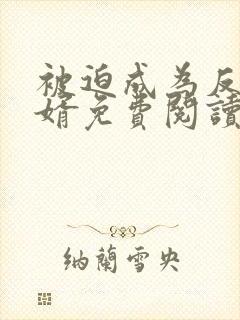 被迫成為反
婿免費閱讀
納蘭雪央